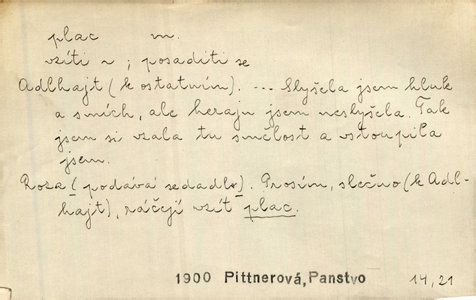 plac m.
vzíti ~ ; posaditi se
Adlhajt (k ostatním). --- Slyšela jsem hluk
a smích, ale herajn jsem neslyšela. Tak
jsem si vzala tu smělost a vstoupila
jsem.
Roza (podává sedadlo). Prosím, slečno (k Adl-
hajt), ráčejí vzít plac.
1900 Pittnerová, Panstvo 14, 21